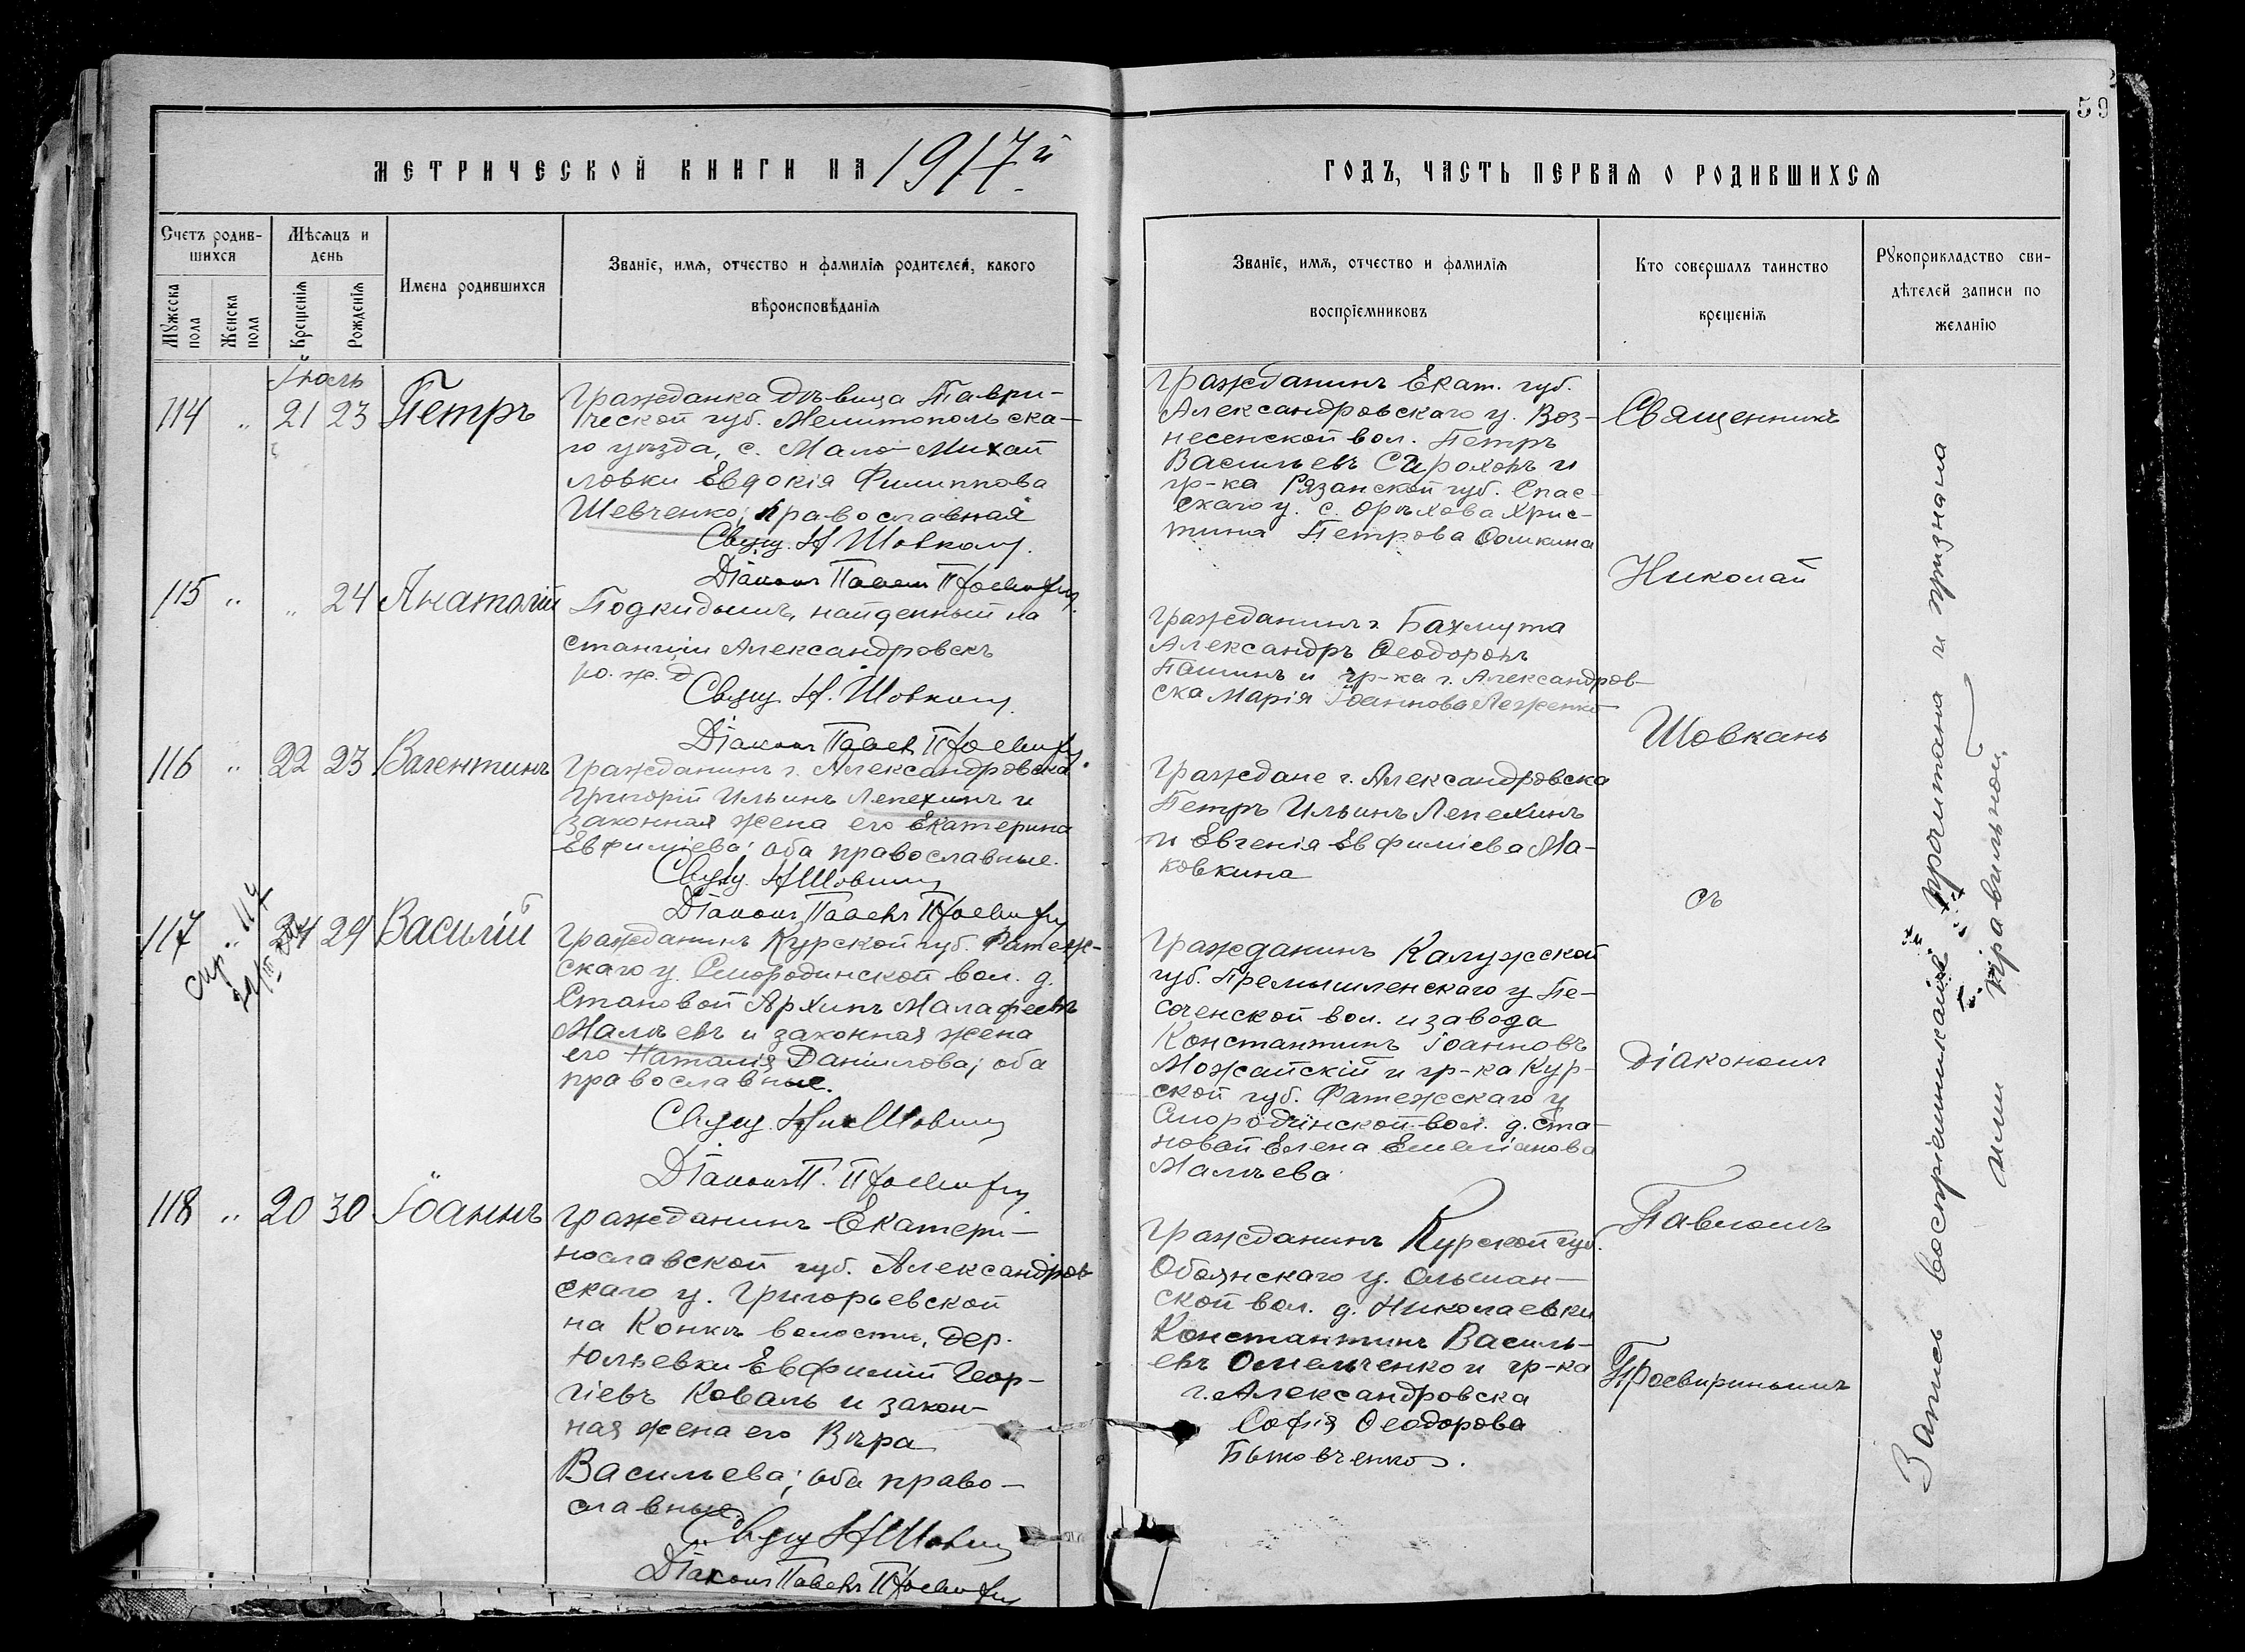 59
МЕТРИЧЕСКОЙ КНИГИ НА 1917й
ГОДЪ, ЧАСТЬ ПЕРВАЯ О РОДИВШИХСЯ
Счетъ родив-
шихся
Мужеска пола
Женска пола
Мѣсяцъ и
день
Крещенія
Рожденія
Имена родившихся
Званіе, имя, отчество и фамилія родителей, какого
вѣроисповѣданія
Званіе, имя, отчество и фамилія
воспріемниковъ
Кто совершалъ таинство
крещенія
Рукоприкладство сви-
дѣтелей записи по
желанію
114 " 21 23 Петръ
Гражданка дѣвица Таври-
ческой губ. Мелитопольска-
го уѣзда, с. Мало-Михай
ловки Евдокія Филиппова
Шевченко; православная
Свящ. Н Шовкан
Діаконъ Павелъ Просвирн
Гражданинъ Екат. губ.
Александровскаго у. Воз-
несенской вол. Петръ
Васильевъ и
гр-ка Рязанской губ. Спас-
скаго у. с. Орѣхова Хрис-
тина Петрова
115 " " 24 Анатолій
Подкидышъ, найденный на
станціи Александровскъ
ю. ж. д
Свящ. Н. Шовкан
Діаконъ Павелъ Просвирн
Гражданинъ г. Бахмута
Александръ Ѳеодоровъ
Пашинъ и гр-ка г. Александров-
ска Марія Іоаннова Леженко
116 " 22 23 Валентинъ
Гражданинъ г. Александровска
Григорій Ильинъ Лепехинъ и
законная жена его Екатерина
Евфиміева; оба православные.
Свящ. Н Шовкан
Діаконъ Павелъ Просвирн
Граждане г. Александровска
Петръ Ильинъ Лепехинъ
и Евгенія Евфиміева Ма-
ковкина
117 " 24 29 Василій
Гражданинъ Курской губ. Фатеж-
скаго у. Смородинской вол. д.
Становой Архипъ Малафеевъ
Малѣевъ и законная жена
его Наталія Даніилова; оба
православные.
Свящ. Ник Шовкан
Діаконъ П. Просвирн
Гражданинъ Калужской
губ. Премышленскаго у Пе-
соченской вол. и завода
Константинъ Іоанновъ
Можайскій и гр-ка Кур-
ской губ. Фатежскаго у
Смородинской вол. д. Ста-
новой Елена Емеліанова
Малѣева
118 " 20 30 Іоаннъ
Гражданинъ Екатери-
нославской губ. Александров
скаго у. Григорьевской
на Конкѣ волости, дер.
Юльевки Евфимій Геор-
гіевъ Коваль и закон-
ная жена его Вѣра
Васильева; оба право-
славные.
Свящ Н Шовкан
Діаконъ Павелъ Просвирн
Гражданинъ Курской губ.
Обоянскаго у. Ольшан-
ской вол. д. Николаевки
Константинъ Василь-
евъ Омельченко и гр-ка
г. Александровска
Софія Ѳеодорова
Быковченко.
Священникъ
Николай
Шовкань
съ
діакономъ
Павломъ
Просвиринымъ
Запись воспріемниками прочитана и признана
ими правильной.